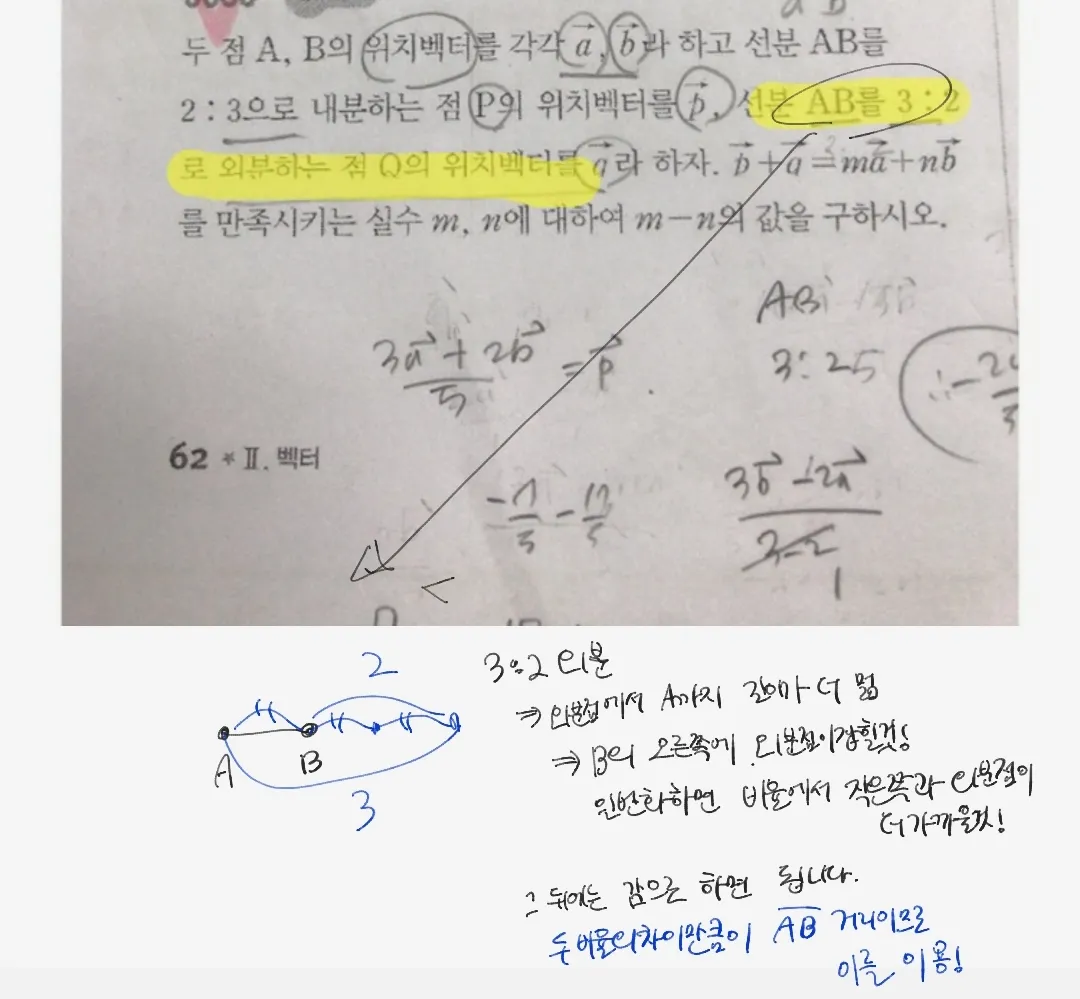 두 점 A, B의 위치벡터를 각각 a⃗, b⃗라 하고 선분 AB를
2 : 3으로 내분하는 점 P의 위치벡터를 p⃗, 선분 AB를 3 : 2
로 외분하는 점 Q의 위치벡터를 q⃗라 하자. p⃗+q⃗=ma⃗+nb⃗
를 만족시키는 실수 m, n에 대하여 m-n의 값을 구하시오.
AB
(3a⃗+2b⃗)/5 = p⃗
3:2
62 * Ⅱ. 벡터
(3b⃗-2a⃗)/(3-2)
1
2
A B
3
3:2 외분
⇒ 외분점에서 A까지 길이가 더 멂
⇒ B의 오른쪽에 외분점이 잡힐것!
일반화하면 비율에서 작은쪽과 외분점이
더 가까울것!
그 뒤에는 감으로 하면 됩니다.
두 비율의 차이만큼이 AB 거리이므로
이를 이용!